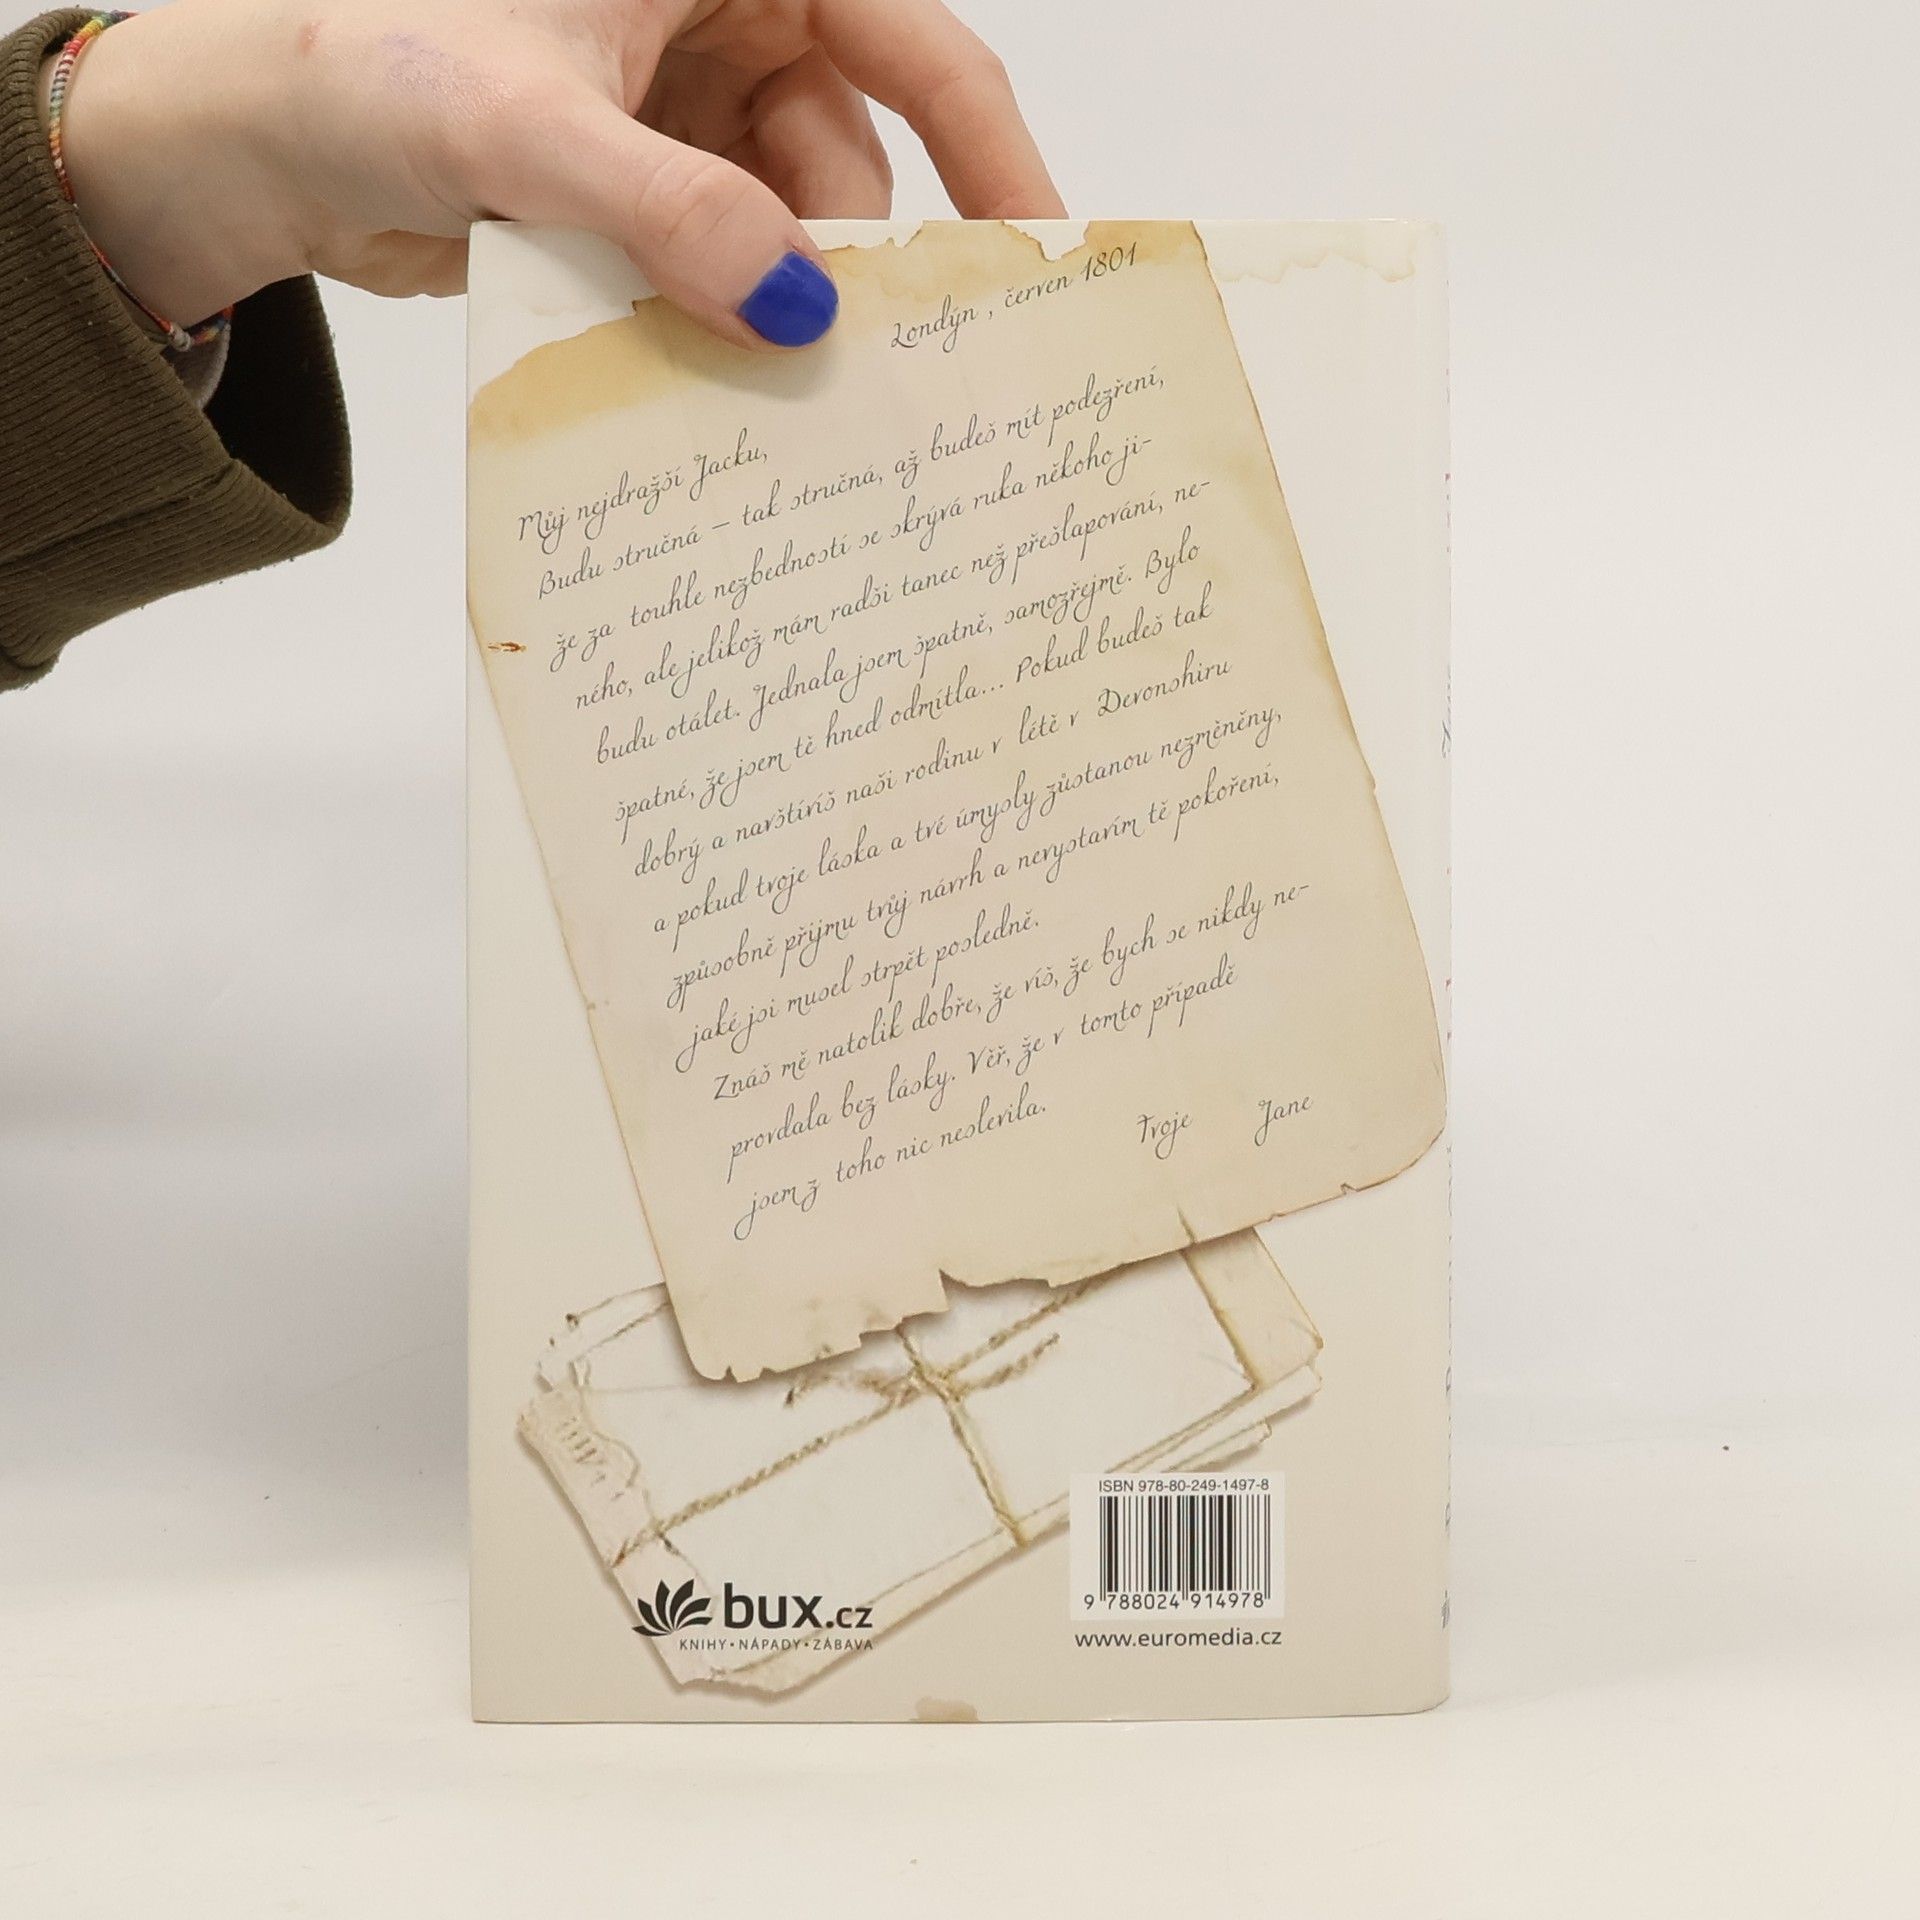 Londýn , červen 1801
Můj nejdražší Jacku,
Budu stručná – tak stručná, až budeš mít podezření,
že za touhle nezbedností se skrývá ruka někoho ji-
ného, ale jelikož mám radši tanec než přešlapování, ne-
budu otálet. Jednala jsem špatně, samozřejmě. Bylo
špatné, že jsem tě hned odmítla... Pokud budeš tak
dobrý a navštívíš naši rodinu v létě v Devonshiru
a pokud tvoje láska a tvé úmysly zůstanou nezměněny,
způsobně přijmu tvůj návrh a nevystavím tě pokoření,
jaké jsi musel strpět posledně.
Znáš mě natolik dobře, že víš, že bych se nikdy ne-
provdala bez lásky. Věř, že v tomto případě
jsem z toho nic neslevila.
Tvoje Jane
ISBN 978-80-249-1497-8
9 788024 914978
bux.cz
KNIHY • NÁPADY • ZÁBAVA
www.euromedia.cz